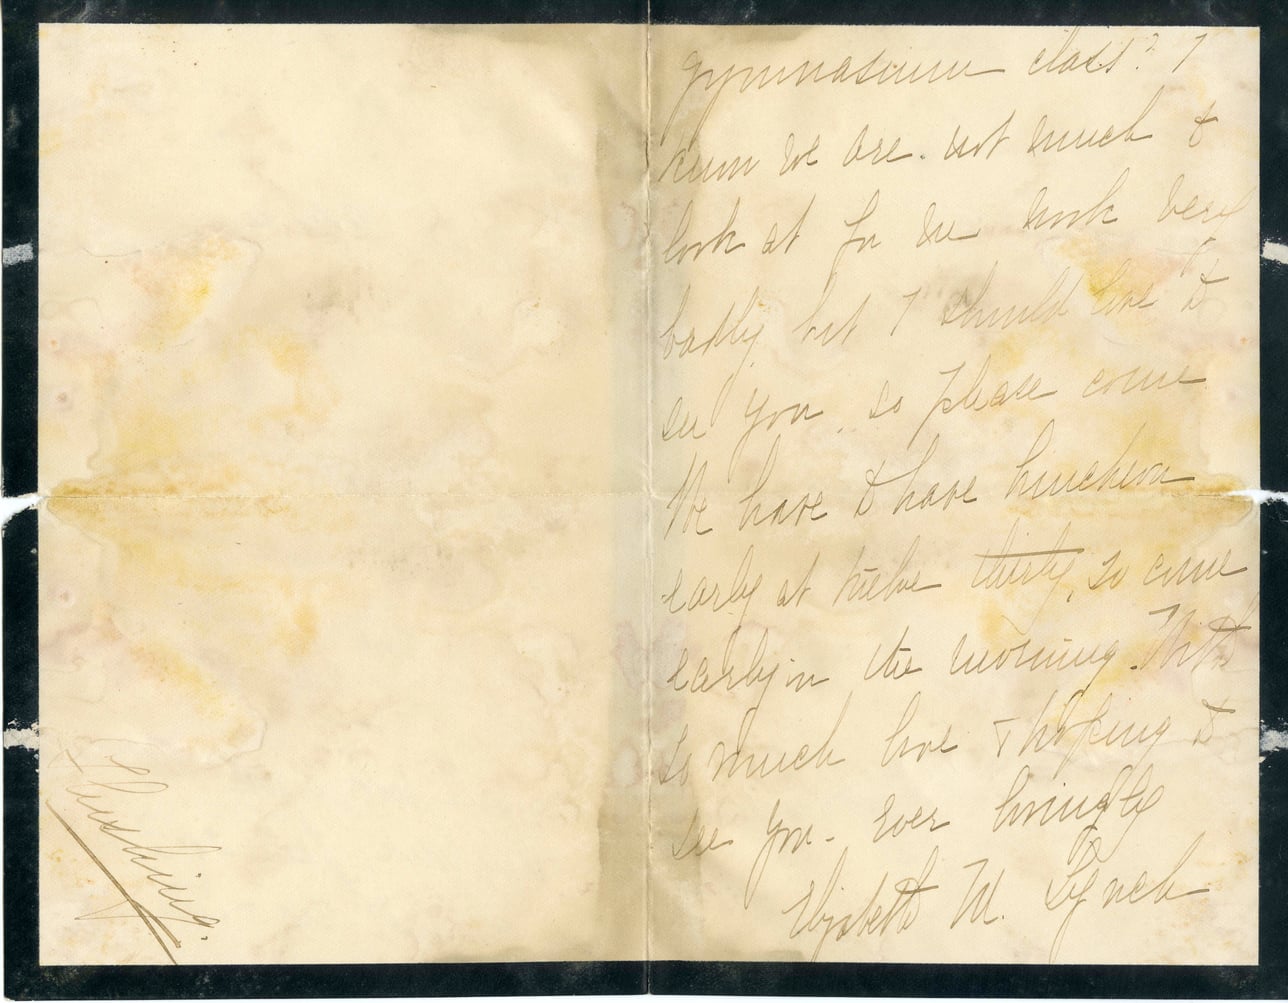 Flushing.
gymnasium class? I
am sure we are not much to
look at for we work very
badly but I should love to
see you, so please come
We have to have luncheon
early at twelve thirty, so come
early in the morning. With
so much love & hoping to
see you. Ever lovingly
Elizabeth M. Lynch